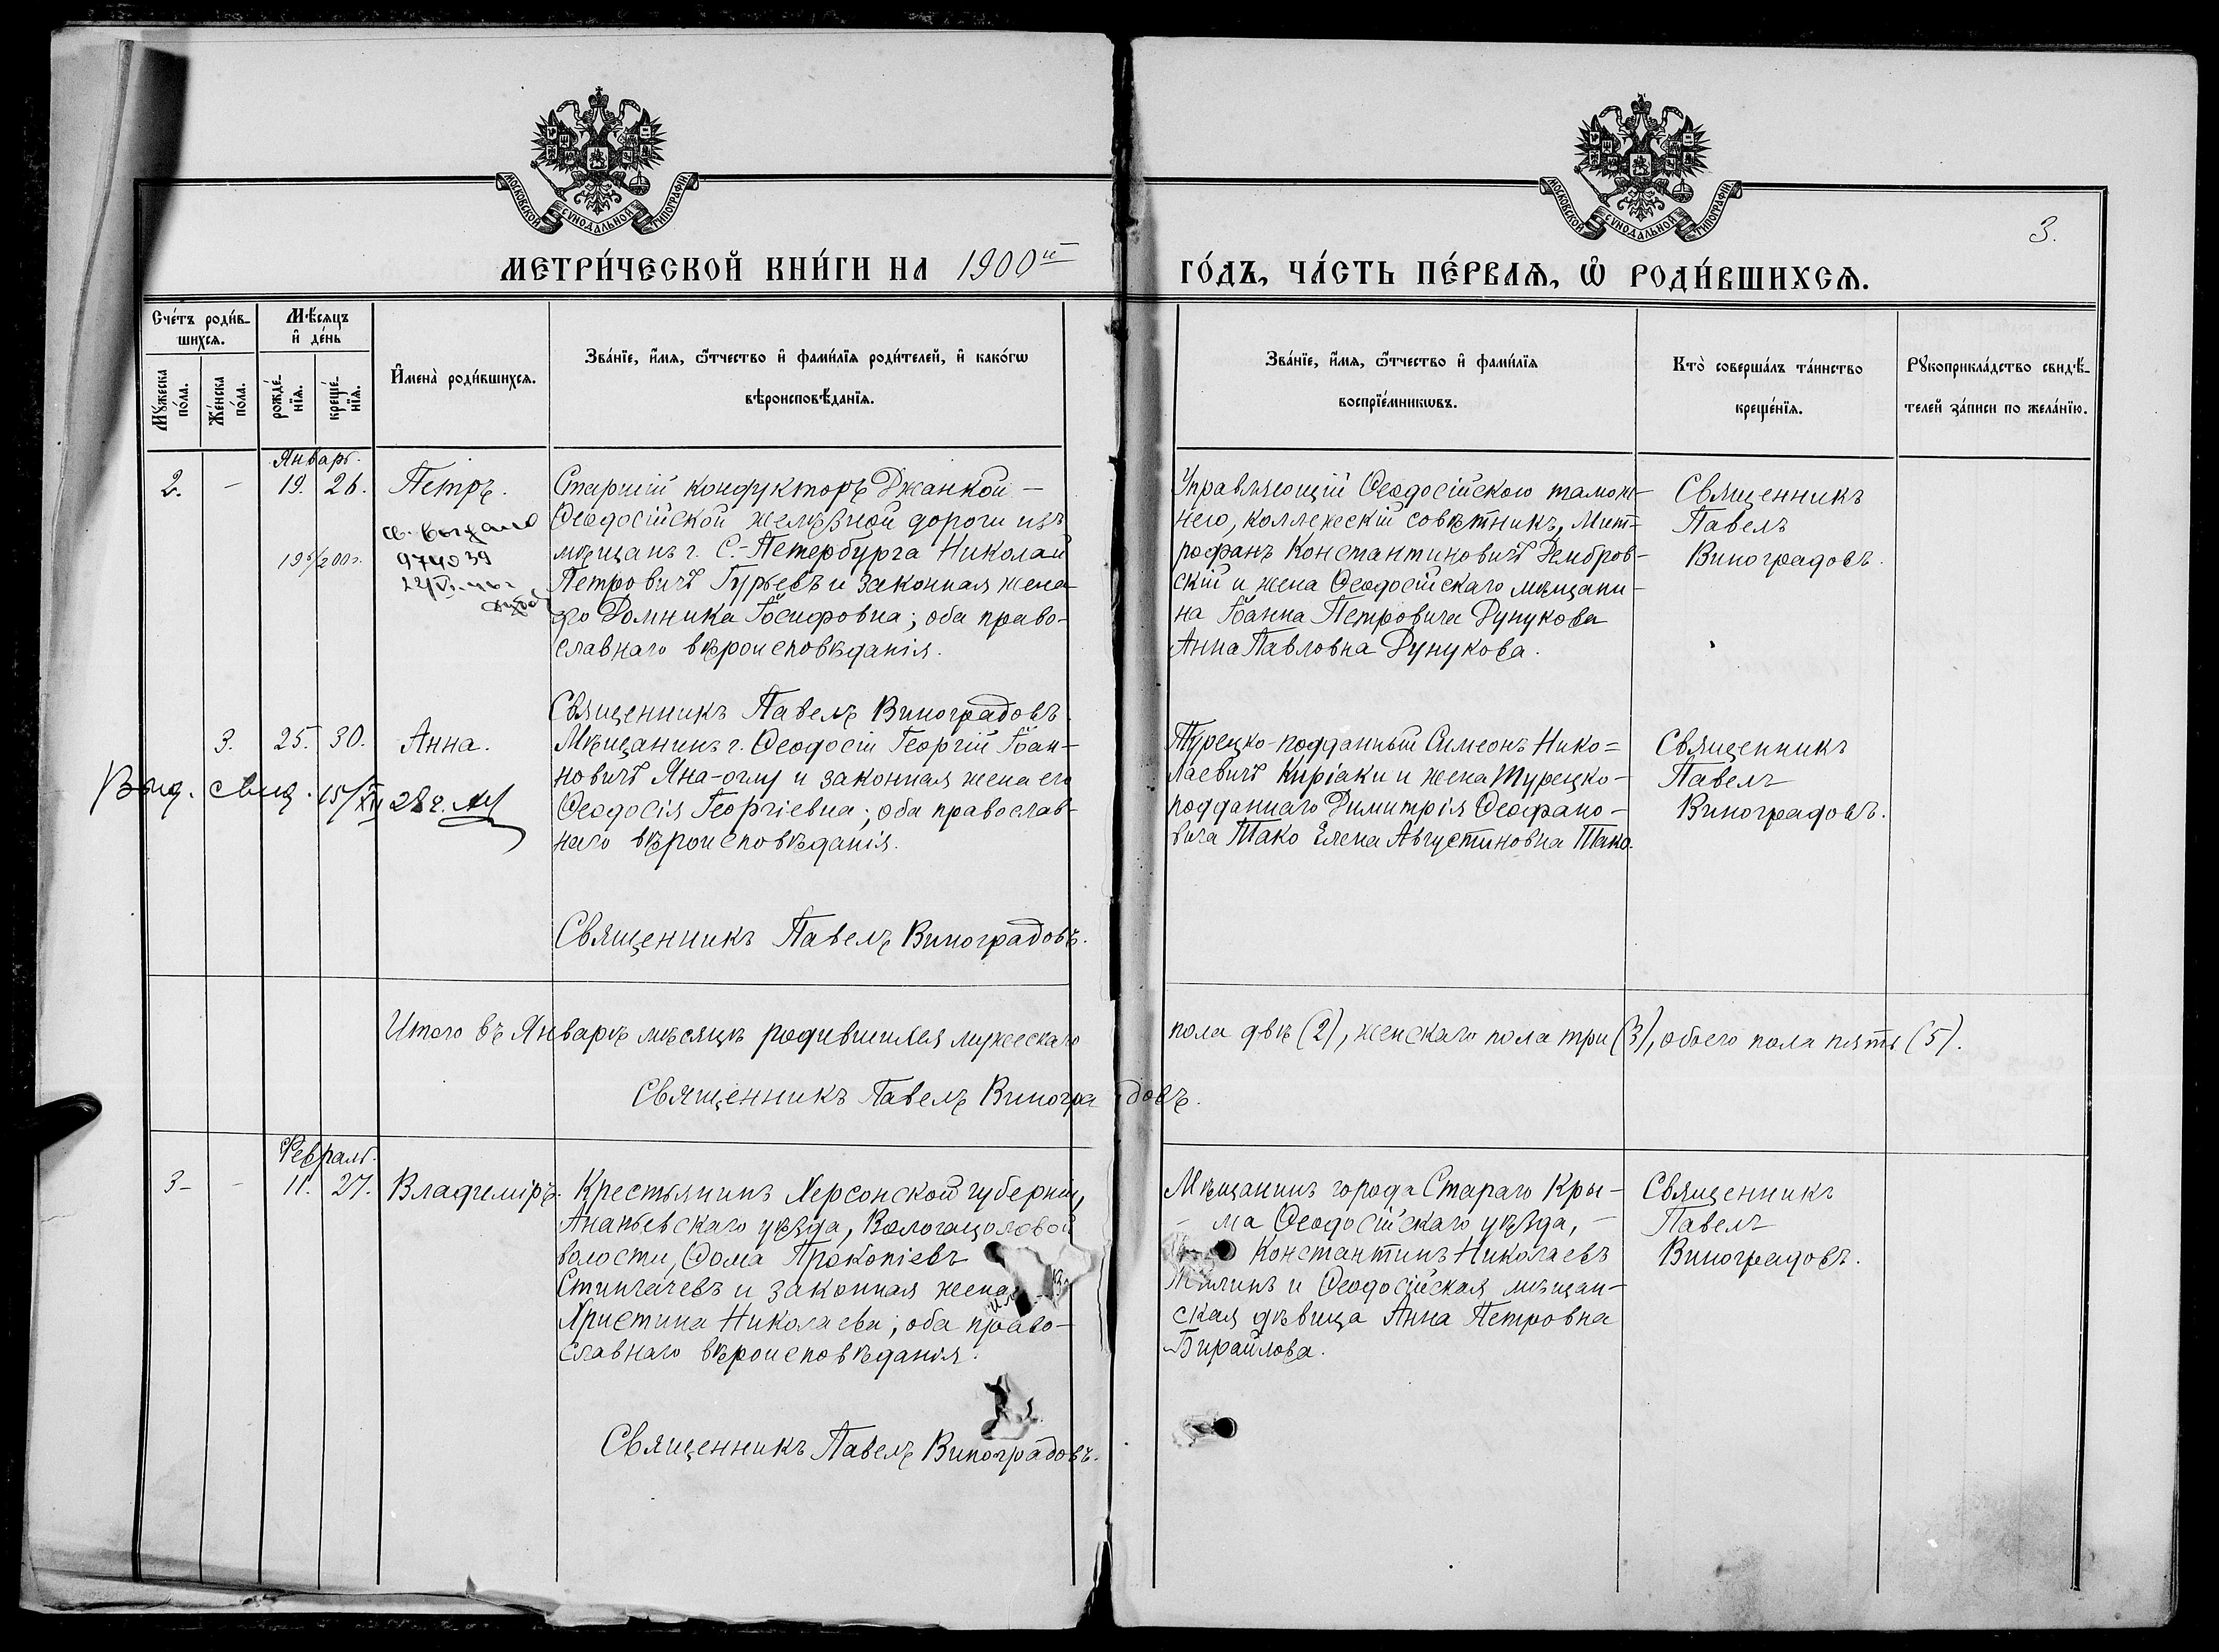 МОСКОВСКОЙ СѴНОДАЛЬНОЙ ТИПОГРАФІИ
МОСКОВСКОЙ СѴНОДАЛЬНОЙ ТИПОГРАФІИ
3.
МЕТРИ́ЧЕСКОЙ КНИ́ГИ НА 1900й
ГО́ДЪ, ЧА́СТЬ ПЕ́РВАѦ, Ѡ҆ РОДИ́ВШИХСѦ.
Сче́тъ роди́в-
шихсѧ.
Мѣ́сяцъ
и҆ де́нь
Мꙋ́жеска
по́ла.
Же́нска
по́ла.
рожде́-
нїѧ.
креще́-
нїѧ.
И҆мена̀ роди́вшихсѧ.
Зва́нїе, и҆́мѧ, ѻ҆́тчество и҆ фами́лїѧ роди́телей, и҆ како́гѡ
вѣроисповѣ́данїѧ.
Зва́нїе, и҆́мѧ, ѻ҆́тчество и҆ фами́лїѧ
воспрїе́мникѡвъ.
Кто̀ соверша́лъ та́инство
креще́нїѧ.
Рꙋкоприкла́дство свидѣ́-
телей за́писи по жела́нїю.
Январь.
2. - 19. 26. Петръ.
Старшій кондукторъ Джанкой-
Ѳеодосійской желѣзной дороги изъ
мѣщанъ г. С.-Петербурга Николай
Петровичъ Гурьевъ и законная жена
его Домника Іосифовна; оба право-
славнаго вѣроисповѣданія.
Священникъ Павелъ Виноградовъ.
св. выдано
974039
Управляющій Ѳеодосійскою тамож-
нею, коллежскій совѣтникъ, Мит-
рофанъ Константиновичъ Дембров-
скій и жена Ѳеодосійскаго мѣщани-
на Іоанна Петровича Дунукова
Анна Павловна Дунукова.
Священникъ
Павелъ
Виноградовъ.
3. 25. 30. Анна.
Выд. свид. 15/XII 28 г.
Мѣщанинъ г. Ѳеодосіи Георгій Іоан-
новичъ Яна-оглу и законная жена его
Ѳеодосія Георгіевна; оба православ-
наго вѣроисповѣданія.
Священникъ Павелъ Виноградовъ.
Турецко-подданный Симеонъ Нико=
лаевичъ Киріаки и жена турецко-
подданнаго Димитрія Ѳеофано-
вича Тако Елена Августиновна Тако.
Священникъ
Павелъ
Виноградовъ.
Итого въ Январѣ мѣсяцѣ родившихся мужескаго пола двѣ (2), женскаго пола три (3), обоего пола пять (5).
Священникъ Павелъ Виноградовъ.
Февраль.
3- - 11. 27. Владиміръ.
Крестьянинъ Херсонской губерніи,
Ананьевскаго уѣзда,
волости, Ѳома Прокопіевъ
и законная жена
Христина Николаева; оба право-
славнаго вѣроисповѣданія.
Священникъ Павелъ Виноградовъ.
Мѣщанинъ города Стараго Кры-
- ма Ѳеодосійскаго уѣзда, -
Константинъ Николаевъ
и Ѳеодосійская мѣщан-
ская дѣвица Анна Петровна
Бирайлова.
Священникъ
Павелъ
Виноградовъ.